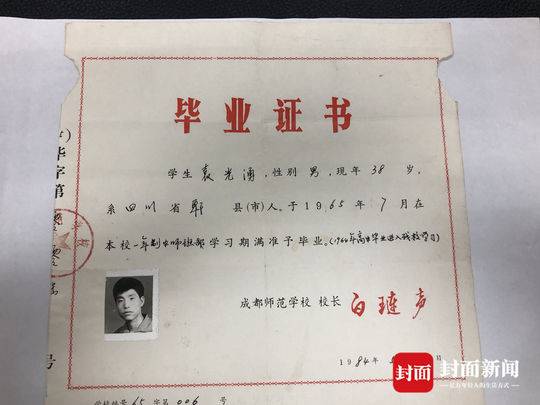 毕业证书
学生袁光涌,性别男,现年38岁,
系四川省郫县(市)人。于1965年7月在
本校一年制中师班部学习期满准予毕业。(1964年高中毕业进入我校学习)
成都师范学校 校长
1984年
毕字第
号
65 字第 006 号
封面 封面新闻
亿万年轻人的生活方式